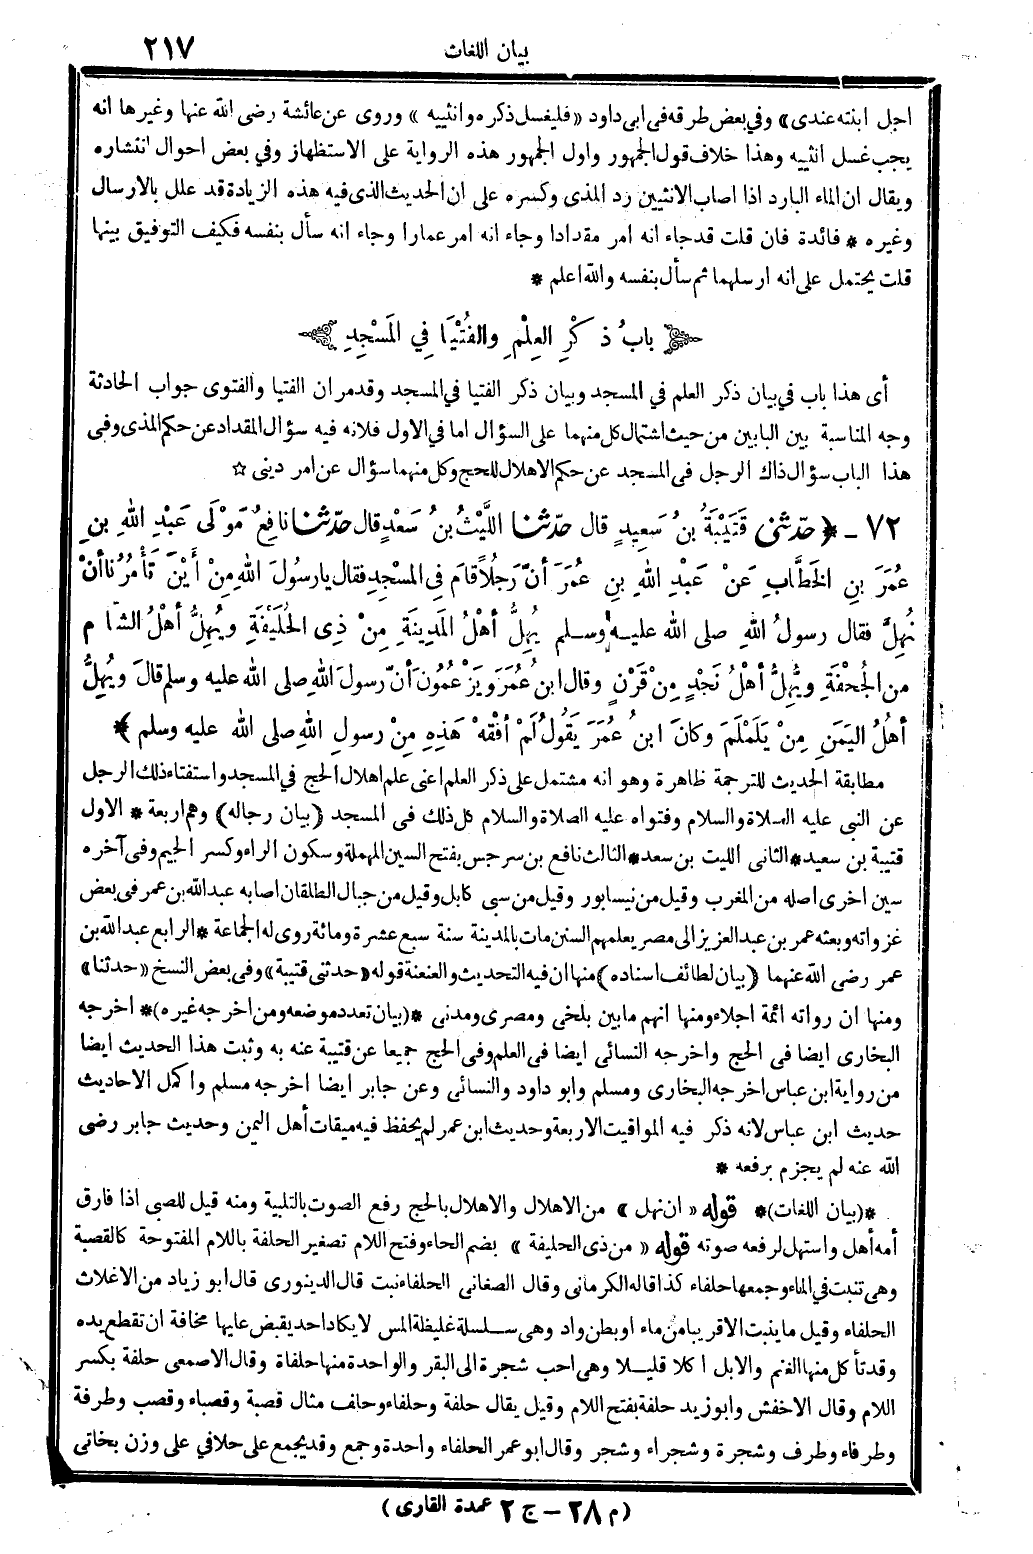 بيان اللغات ٢١٧
اجل ابنته عندى» وفي بعض طرقه فى ابى داود «فليغسل ذكره وانثييه» وروى عن عائشة رضى الله عنها وغيرها انه
يجب غسل انثييه وهذا خلاف قول الجمهور واول الجمهور هذه الرواية على الاستظهار وفي بعض احوال انتشاره
ويقال ان الماء البارد اذا اصاب الانثيين رد المذى وكسره على ان الحديث الذى فيه هذه الزيادة قد علل بالارسال
وغيره * فائدة فان قلت قد جاء انه امر مقدادا وجاء انه امر عمارا وجاء انه سأل بنفسه فكيف التوفيق بينها
قلت يحتمل على انه ارسلهما ثم سأل بنفسه والله اعلم *
بابُ ذِكْرِ العِلْمِ والفُتْيَا فِي المَسْجِدِ
أى هذا باب في بيان ذكر العلم في المسجد وبيان ذكر الفتيا في المسجد وقد مر ان الفتيا والفتوى جواب الحادثة
وجه المناسبة بين البابين من حيث اشتمال كل منهما على السؤال اما في الاول فلانه فيه سؤال المقداد عن حكم المذى وفى
هذا الباب سؤال ذاك الرجل فى المسجد عن حكم الاهلال للحج وكل منهما سؤال عن امر دينى ☆
٧٢ - ﴿ حدّثنى قُتَيْبَةُ بنُ سَعِيدٍ قال حدّثنا اللَّيْثُ بنُ سَعْدٍ قال حدّثنا نافِعٌ مَوْلَى عَبْدِ اللهِ بنِ
عُمَرَ بنِ الخَطَّابِ عَنْ عَبْدِ اللهِ بنِ عُمَرَ أنَّ رَجُلاً قامَ فِي المَسْجِدِ فقال يا رسُولَ اللهِ مِنْ أيْنَ تَأْمُرُنا أنْ
نُهِلَّ فقال رسولُ اللهِ صلى الله عليه وسلم يُهِلُّ أهْلُ المَدِينَةِ مِنْ ذِى الحُلَيْفَةِ ويُهِلُّ أهْلُ الشَّامِ
من الجُحْفَةِ ويُهِلُّ أهْلُ نَجْدٍ مِنْ قَرْنٍ وقال ابنُ عُمَرَ ويَزْعُمُونَ أنَّ رسولَ اللهِ صلى الله عليه وسلم قالَ ويُهِلُّ
أهْلُ اليَمَنِ مِنْ يَلَمْلَمَ وكانَ ابنُ عُمَرَ يَقُولُ لَمْ أفْقَهْ هَذِهِ مِنْ رسولِ اللهِ صلى الله عليه وسلم ﴾
مطابقة الحديث للترجمة ظاهرة وهو انه مشتمل على ذكر العلم اعنى علم اهلال الحج في المسجد واستفتاء ذلك الرجل
عن النبى عليه الصلاة والسلام وفتواه عليه الصلاة والسلام كل ذلك فى المسجد (بيان رجاله) وهم اربعة * الاول
قتيبة بن سعيد * الثانى الليث بن سعد * الثالث نافع بن سرجس بفتح السين المهملة وسكون الراء وكسر الجيم وفى آخره
سين اخرى اصله من المغرب وقيل من نيسابور وقيل من سبى كابل وقيل من جبال الطلقان اصابه عبد الله بن عمر فى بعض
غزواته وبعثه عمر بن عبد العزيز الى مصر يعلمهم السنن مات بالمدينة سنة سبع عشرة ومائة روى له الجماعة * الرابع عبد الله بن
عمر رضى الله عنهما (بيان لطائف اسناده) منها ان فيه التحديث والعنعنة قوله «حدثنى قتيبة» وفى بعض النسخ «حدثنا»
ومنها ان رواته ائمة اجلاء ومنها انهم مابين بلخى ومصرى ومدنى * (بيان تعدد موضعه ومن اخرجه غيره) * اخرجه
البخارى ايضا فى الحج واخرجه النسائى ايضا فى العلم وفى الحج جميعا عن قتيبة عنه به وثبت هذا الحديث ايضا
من رواية ابن عباس اخرجه البخارى ومسلم وابو داود والنسائى وعن جابر ايضا اخرجه مسلم واكمل الاحاديث
حديث ابن عباس لانه ذكر فيه المواقيت الاربعة وحديث ابن عمر لم يحفظ فيه ميقات أهل اليمن وحديث جابر رضى
الله عنه لم يجزم برفعه *
*(بيان اللغات)* قوله «ان نهل» من الاهلال والاهلال بالحج رفع الصوت بالتلبية ومنه قيل للصبى اذا فارق
أمه أهل واستهل لرفعه صوته قوله «من ذى الحليفة» بضم الحاء وفتح اللام تصغير الحلفة باللام المفتوحة كالقصبة
وهى تنبت في الماء وجمعها حلفاء كذا قاله الكرمانى وقال الصغانى الحلفاء نبت قال الدينورى قال ابو زياد من الاغلاث
الحلفاء وقيل ما ينبت الا قريبا من ماء او بطن واد وهى سلسلة غليظة المس لا يكاد احد يقبض عليها مخافة ان تقطع يده
وقد تأكل منها الغنم والابل اكلا قليلا وهى احب شجرة الى البقر والواحدة منها حلفاة وقال الاصمعى حلفة بكسر
اللام وقال الاخفش وابو زيد حلفة بفتح اللام وقيل يقال حلفة وحلفاء وحلف مثال قصبة وقصباء وقصب وطرفة
وطرفاء وطرف وشجرة وشجراء وشجر وقال ابو عمر الحلفاء واحدة وجمع وقد يجمع على حلافي على وزن بخاتى
(م ٢٨ - ج ٢ عمدة القارى)